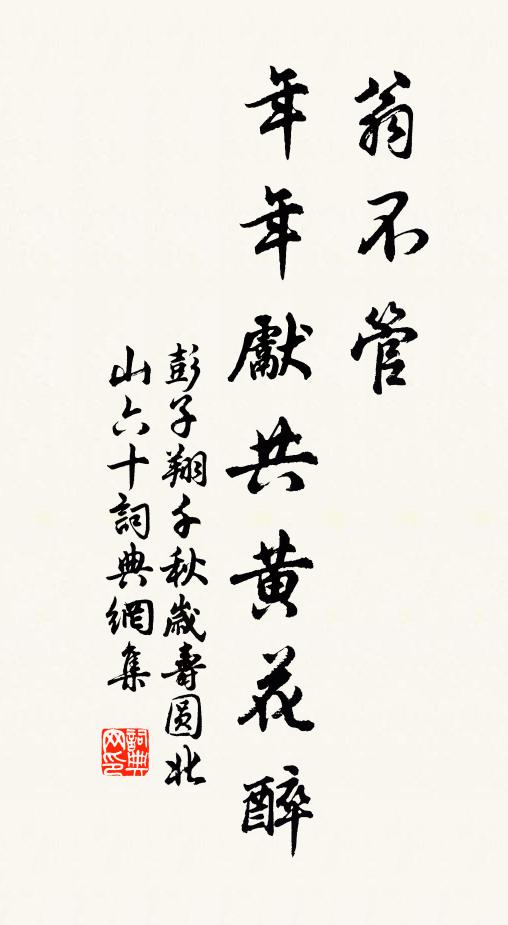 翁不管
年年獻共黃花醉
彭子翔千秋歲壽圆北
山六十詞典網集
詞典
网印